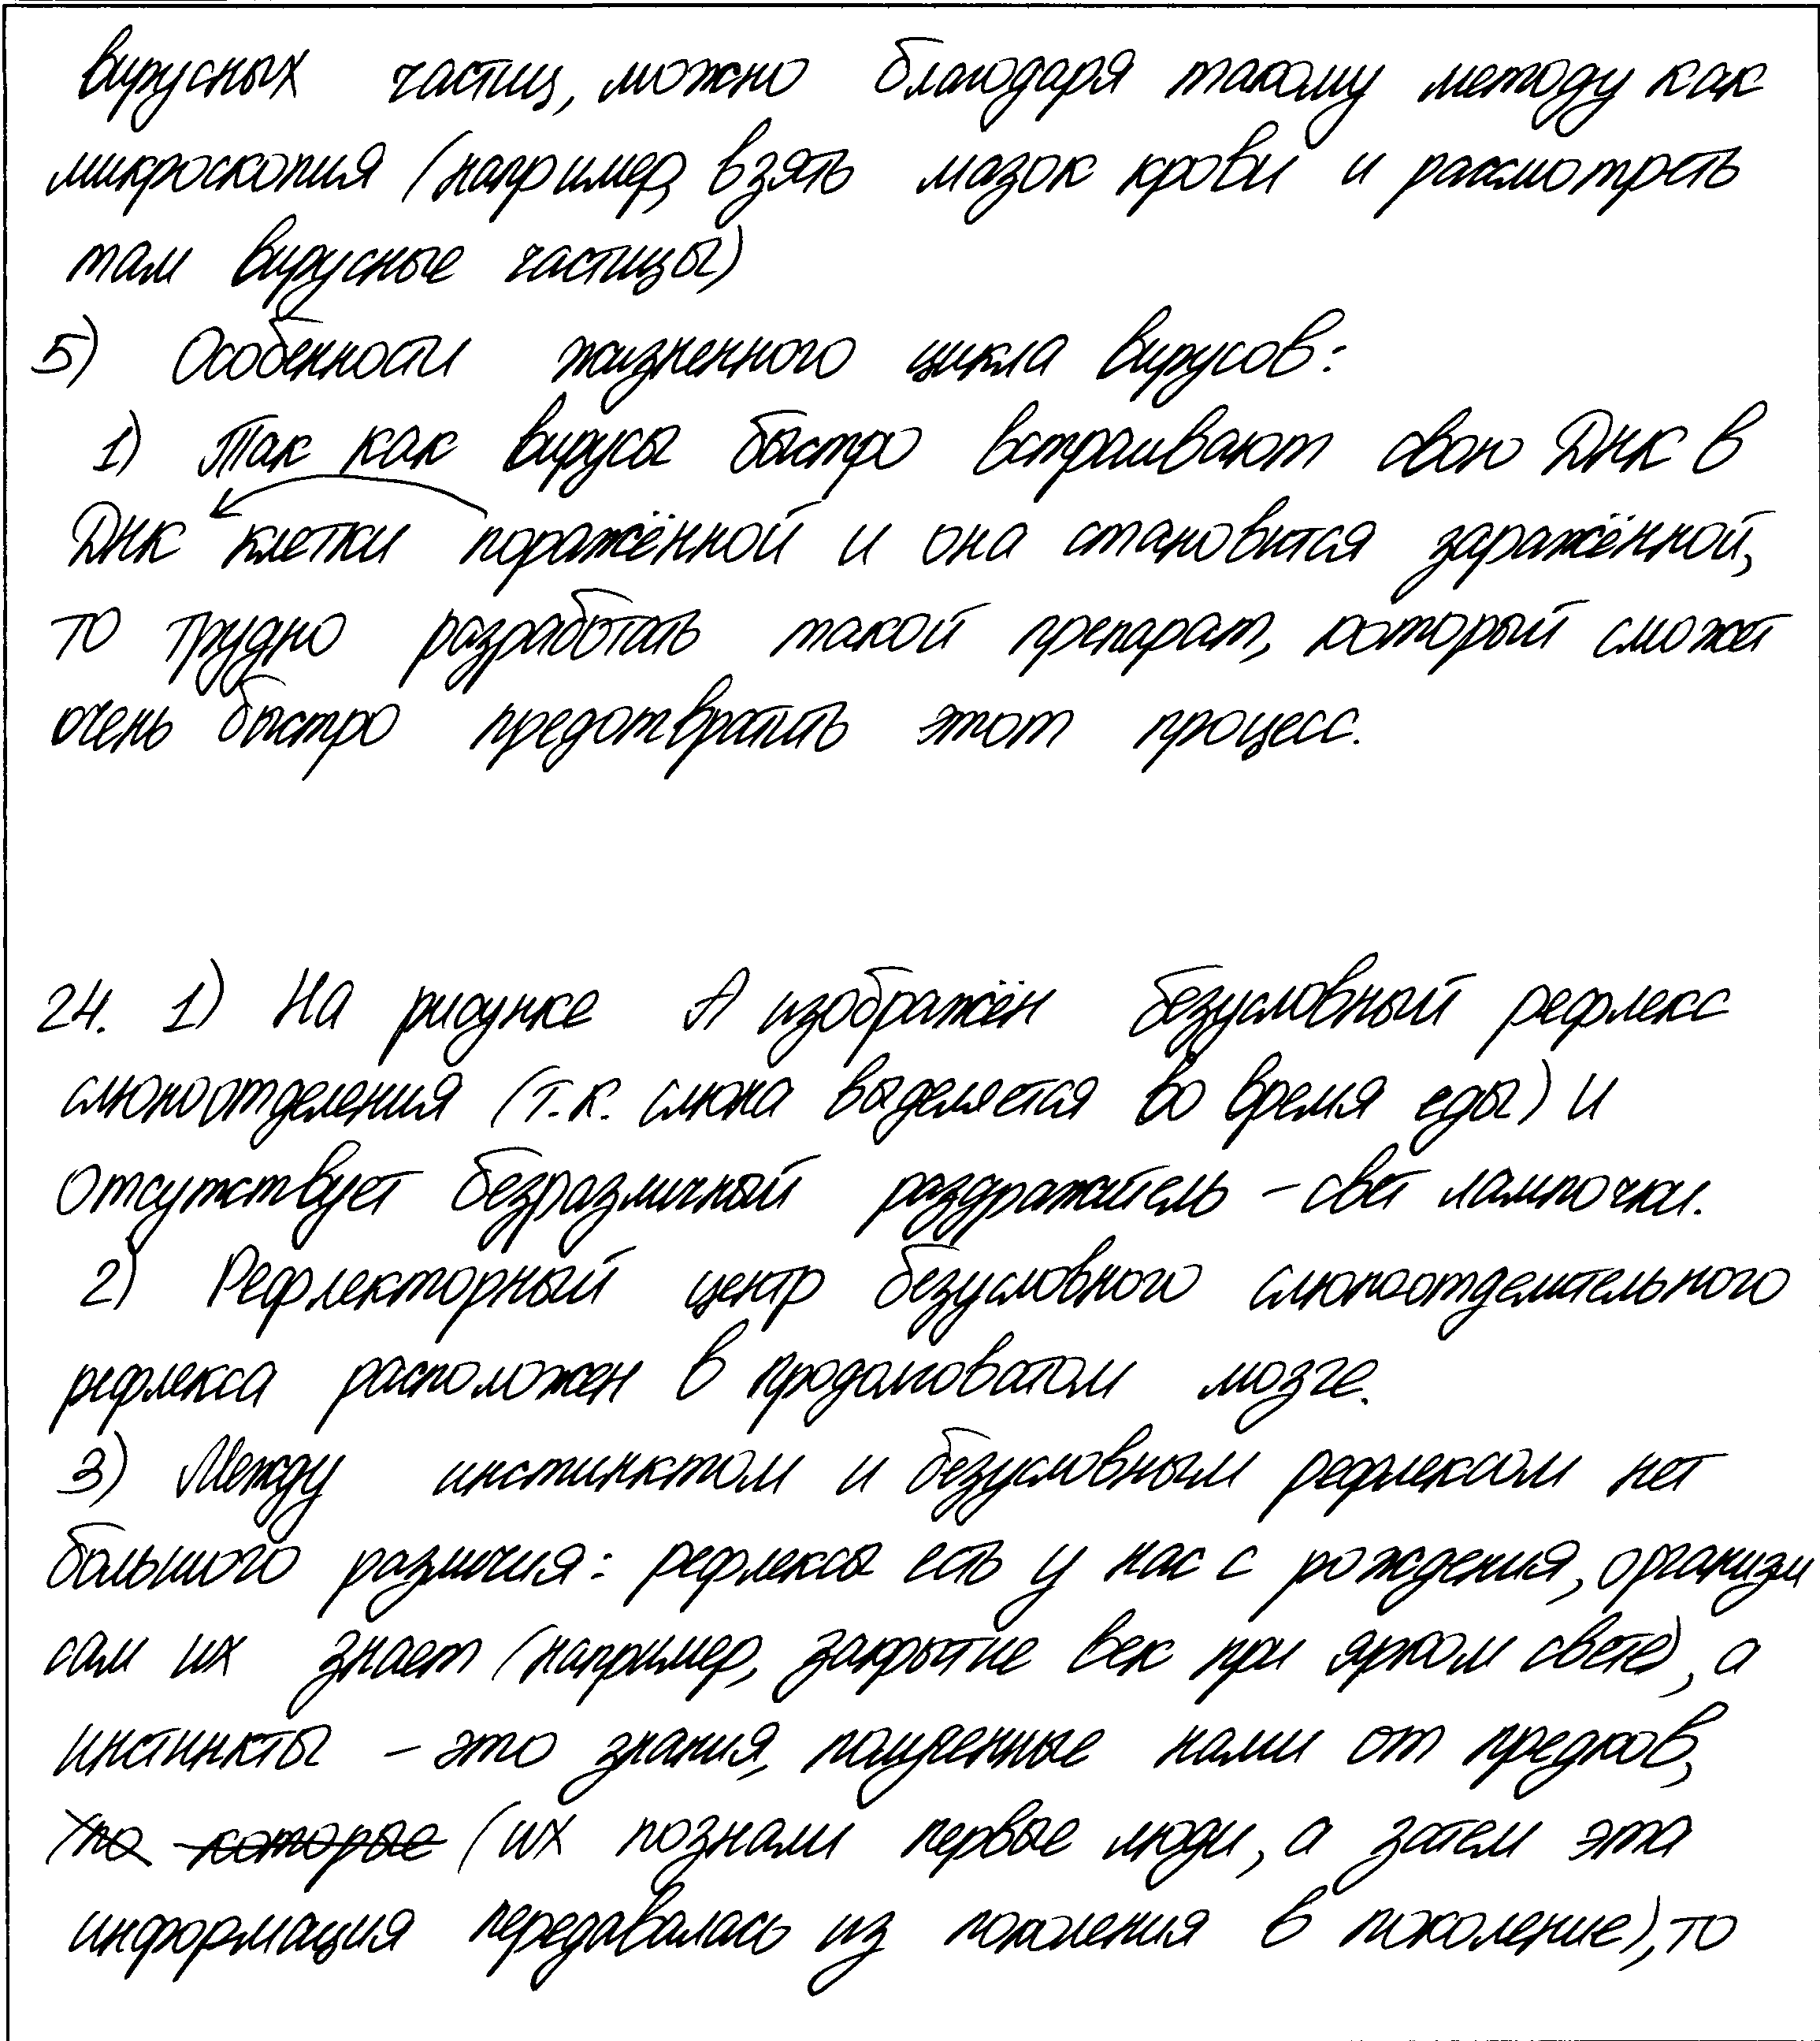 вирусных частиц, можно благодаря такому методу как
микроскопия (например, взять мазок крови и рассмотреть
там вирусные частицы)
5) Особенности жизненного цикла вирусов:
1) Так как вирусы быстро встраивают свою ДНК в
ДНК клетки поражённой и она становится заражённой,
то трудно разработать такой препарат, который сможет
очень быстро предотвратить этот процесс.
24. 1) На рисунке А изображён безусловный рефлекс
слюноотделения (т.к. слюна выделяется во время еды) и
отсутствует безразличный раздражитель – свет лампочки.
2) Рефлекторный центр безусловного слюноотделительного
рефлекса расположен в продолговатом мозге.
3) Между инстинктом и безусловным рефлексом нет
большого различия: рефлексы есть у нас с рождения, организм
сам их знает (например, закрытие век при ярком свете), а
инстинкты – это знания, полученные нами от предков,
(их познали первые люди, а затем эта
информация передавалась из поколения в поколение), то